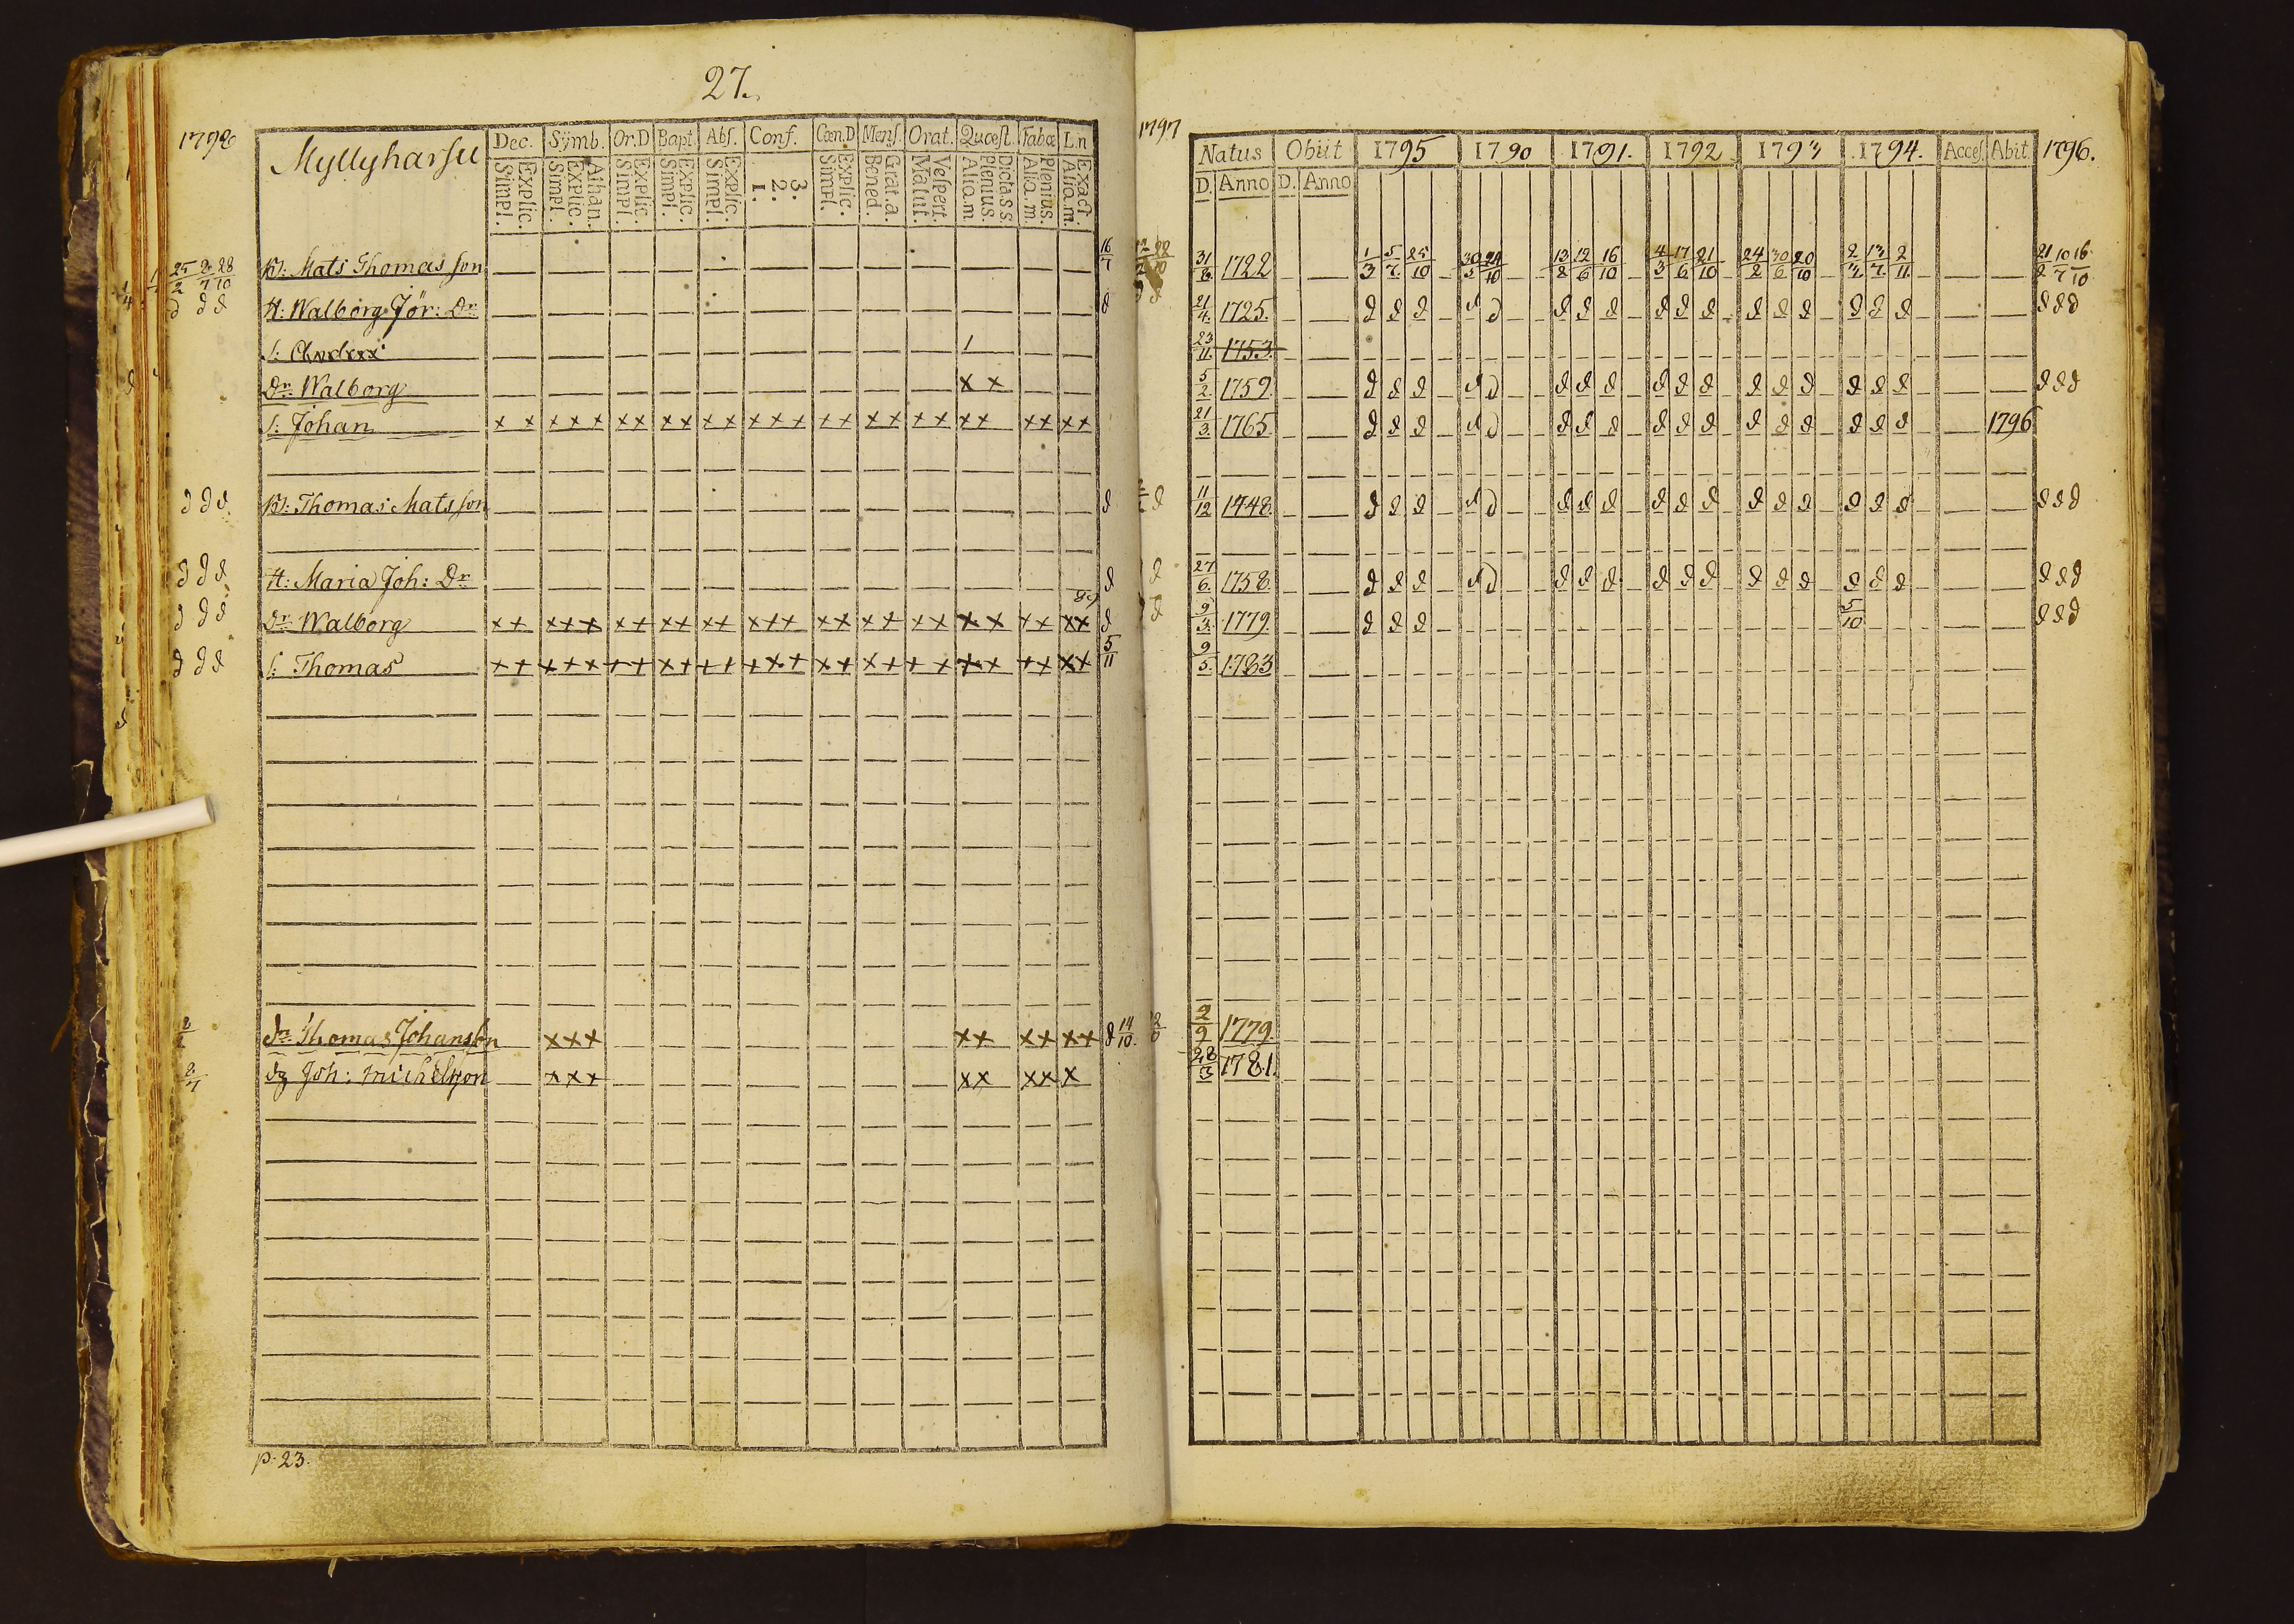 27.
1798
Myllyharju Dec. Symb. Or.D Bapt. Abs. Conf. Cœn.D Mens. Orat. Quæst. Tabœ L.n
Simpl. Explic. Simpl. Explic. Athan. Simpl. Explic. Simpl. Explic. Simpl. Explic. 1. 2. 3. Simpl. Explic. Bened. Grat. a. Matut. Vespert. Aliq.m. Plenius. Dictas s. Aliq.m. Plenius. Aliq.m. Exact.
25/2 2/7 28/10 B: Mats Thomas son 16/7
d d d H: Walborg Jör: Dr d
S: Anders
Dr Walborg x x
S: Johan x x x x x x x x x x x x x x x x x x x x x x x x x x
d d d B: Thomas Mats son d
d d d H: Maria Joh: Dr d
d d d Dr Walborg x x x x x x x x x x x x x x x x x x x x x x x x x x d
d d d S: Thomas x x x x x x x x x x x x x x x x x x x x x x x x x x 5/11
dr Thomas Johansson x x x x x x x x x d 14/10
dg Joh: Michelsson x x x x x x x x
p. 23.
1797
Natus Obiit 1795 1790 1791. 1792 1793 1794. Acces. Abit. 1796.
D. Anno D. Anno
31/8 1722 1/3 5/7 25/10 13/2 12/6 16/10 4/3 17/6 21/10 24/2 30/6 20/10 2/11 21/2 10/7 16/10
21/4. 1725. d d d d d d d d d d d d d d d d d d d d
23/11. 1753.
5/2. 1759. d d d d d d d d d d d d d d d d d d d d
21/3 1765. d d d d d d d d d d d d d d d d d 1796
11/12 1748. d d d d d d d d d d d d d d d d d d d d
27/6. 1758. d d d d d d d d d d d d d d d d d d d d
9/3. 1779. d d d 5/10 d d d
9/5. 1783
2/9 1779.
28/3 1781.